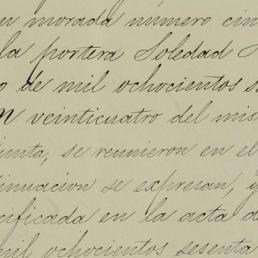 morada número cin
la portera Soledad
o de mil ochocientos s
n veinticuatro del mis
unta, se reunieron en el
tinuacion se expresan, y
cificada en la acta d
mil ochocientos sesenta